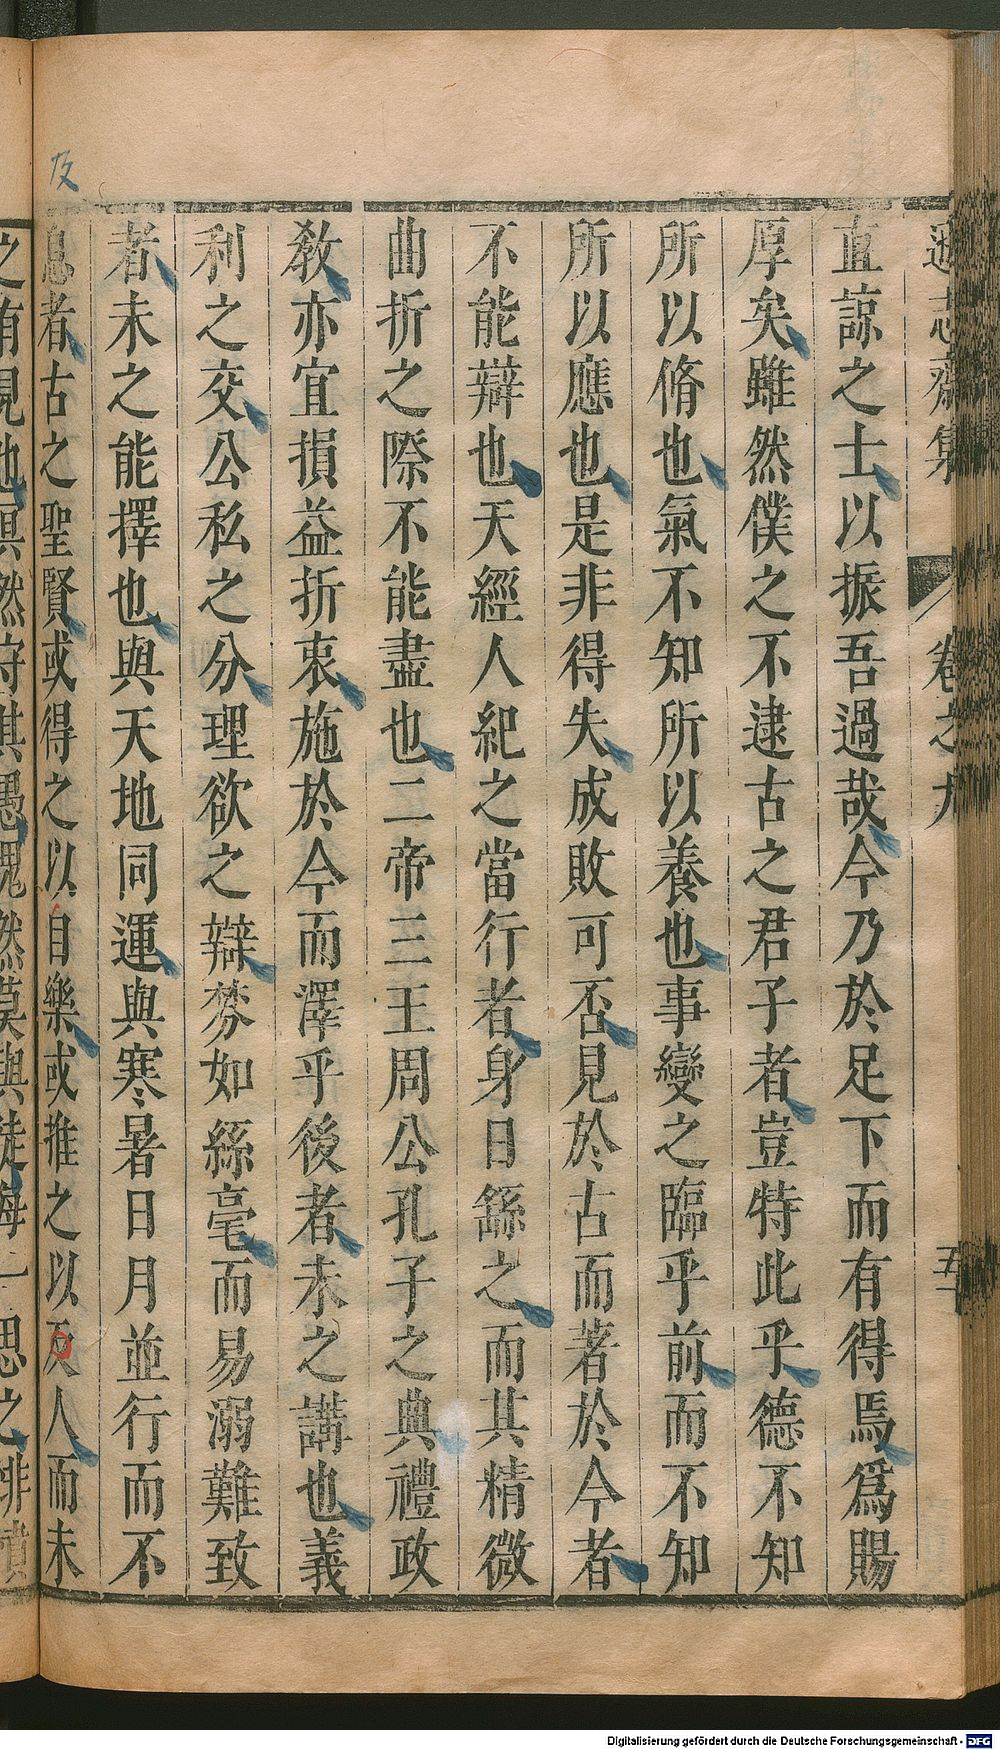 遜志齋集 卷之九 五十
直諒之士以振吾過哉今乃於足下而有得焉爲賜
厚矣雖然僕之不逮古之君子者豈特此乎德不知
所以脩也氣不知所以養也事變之臨乎前而不知
所以應也是非得失成敗可否見於古而著於今者
不能辯也天經人紀之當行者身日繇之而其精微
曲折之際不能盡也二帝三王周公孔子之典禮政
敎亦宜損益折衷施於今而澤乎後者未之講也義
利之交公私之分理欲之辯棼如絲毫而易溺難致
者未之能擇也與天地同運與寒暑日月並行而不
息者古之聖賢或得之以自樂或推之以及人而未
及
之有見也
愚
然莫與徒
一思之
Digitalisierung gefördert durch die Deutsche Forschungsgemeinschaft - DFG